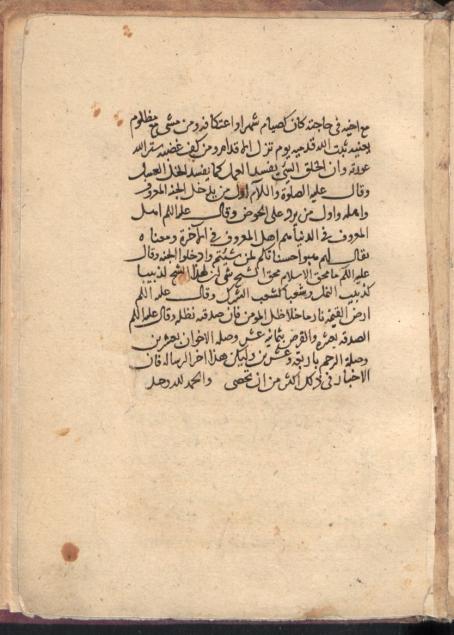 مع اخيه فى حاجته كان كصيام شهر او اعتكافه ومن مشى مع مظلوم
يعينه ثبت الله قدميه يوم تزل الاقدام ومن كف غضبه ستر الله
عورته وان الخلق السئ يفسد العمل كما يفسد الخل العسل
وقال عليه الصلوة والسلام اول من يدخل الجنة المعروف
واهله واول من يرد على الحوض وقال عليه السلام اهل
المعروف فى الدنيا هم اهل المعروف فى الآخرة ومعناه
يقال لهم هبوا حسناتكم لمن شئتم وادخلوا الجنة وقال
عليه السلام ما محق الاسلام محق الشح شى ان لهذا الشح لدبيبا
كدبيب النمل وشعبا كشعب الشرك وقال عليه السلام
ارض القيمة نار ما خلا ظل المومن فان صدقته تظله وقال عليه السلام
الصدقة بعشرة والقرض بثمانية عشر وصلة الاخوان بعشرين
وصلة الرحم باربعة وعشرين وليكن هذا اخر الرسالة فان
الاخبار فى ذلك اكثر من ان تحصى والحمد لله وحده